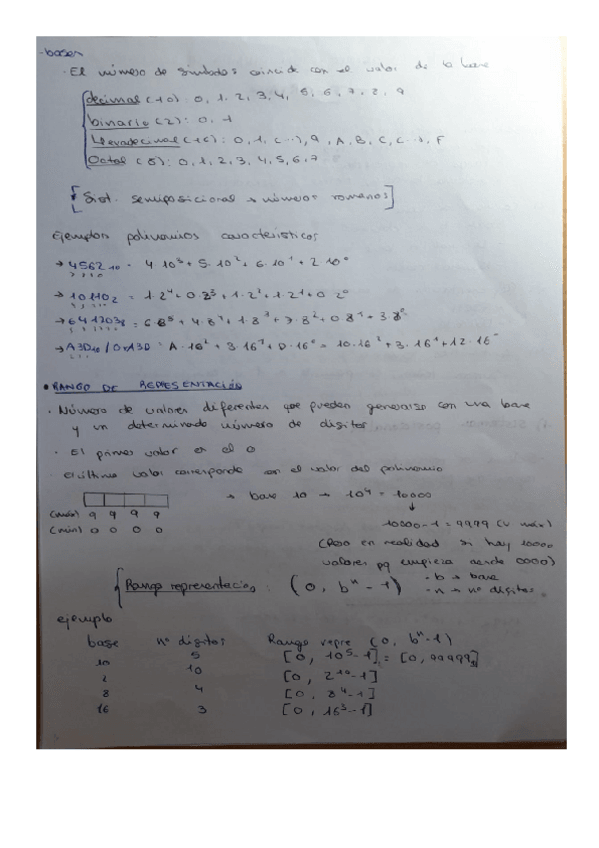 -bases
· El número de símbolos coincide con el valor de la base
decimal (10): 0, 1, 2, 3, 4, 5, 6, 7, 8, 9
binario (2): 0, 1
Hexadecimal (16): 0, 1, (...), 9, A, B, C, (...), F
Octal (8): 0, 1, 2, 3, 4, 5, 6, 7
[Sist. semiposicional → números romanos]
Ejemplos polinomios característicos
→ 4562₁₀ = 4·10³ + 5·10² + 6·10¹ + 2·10⁰
→ 10110₂ = 1·2⁴ + 0·2³ + 1·2² + 1·2¹ + 0·2⁰
→ 641703₈ = 6·8⁵ + 4·8⁴ + 1·8³ + 7·8² + 0·8¹ + 3·8⁰
→ A3D₁₆ / 0xA3D = A·16² + 3·16¹ + D·16⁰ = 10·16² + 3·16¹ + 12·16⁰
• RANGO DE REPRESENTACIÓN
· Número de valores diferentes que pueden generarse con una base
y un determinado número de dígitos
· El primer valor es el 0
· El último valor corresponde con el valor del polinomio
→ base 10 → 10⁴ = 10000
(máx) 9 9 9 9
↓
(mín) 0 0 0 0
10000-1 = 9999 (v máx)
(Pero en realidad si hay 10000
valores pq empieza desde 0000)
Rango representación: (0, bⁿ - 1)
- b → base
- n → nº dígitos
ejemplo
base nº dígitos Rango repre (0, bⁿ-1)
10 5 [0, 10⁵-1] = [0, 99999]
2 10 [0, 2¹⁰-1]
8 4 [0, 8⁴-1]
16 3 [0, 16³-1]